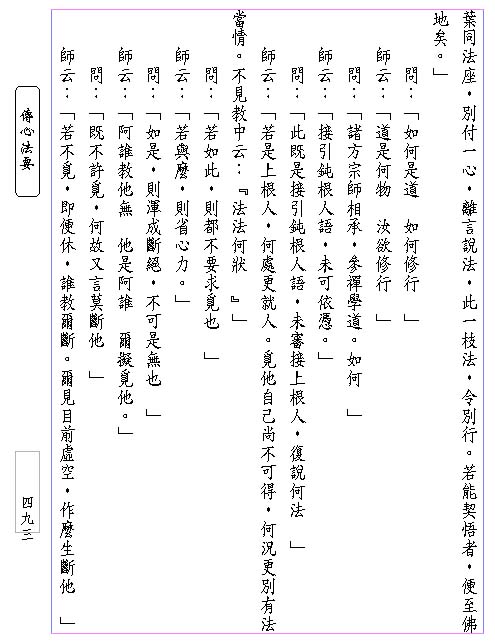 葉同法座，別付一心，離言說法，此一枝法，令別行。若能契悟者，便至佛
地矣。」
問：「如何是道　如何修行　」
師云：「道是何物　汝欲修行　」
問：「諸方宗師相承，參禪學道。如何　」
師云：「接引鈍根人語，未可依憑。」
問：「此既是接引鈍根人語，未審接上根人，復說何法　」
師云：「若是上根人，何處更就人。覓他自己尚不可得，何況更別有法
當情。不見教中云：『法法何狀　』」
問：「若如此，則都不要求覓也　」
師云：「若與麼，則省心力。」
問：「如是，則渾成斷絕，不可是無也　」
師云：「阿誰教他無　他是阿誰　爾擬覓他。」
問：「既不許覓，何故又言莫斷他　」
師云：「若不覓，即便休，誰教爾斷。爾見目前虛空，作麼生斷他　」
傳心法要
四九三